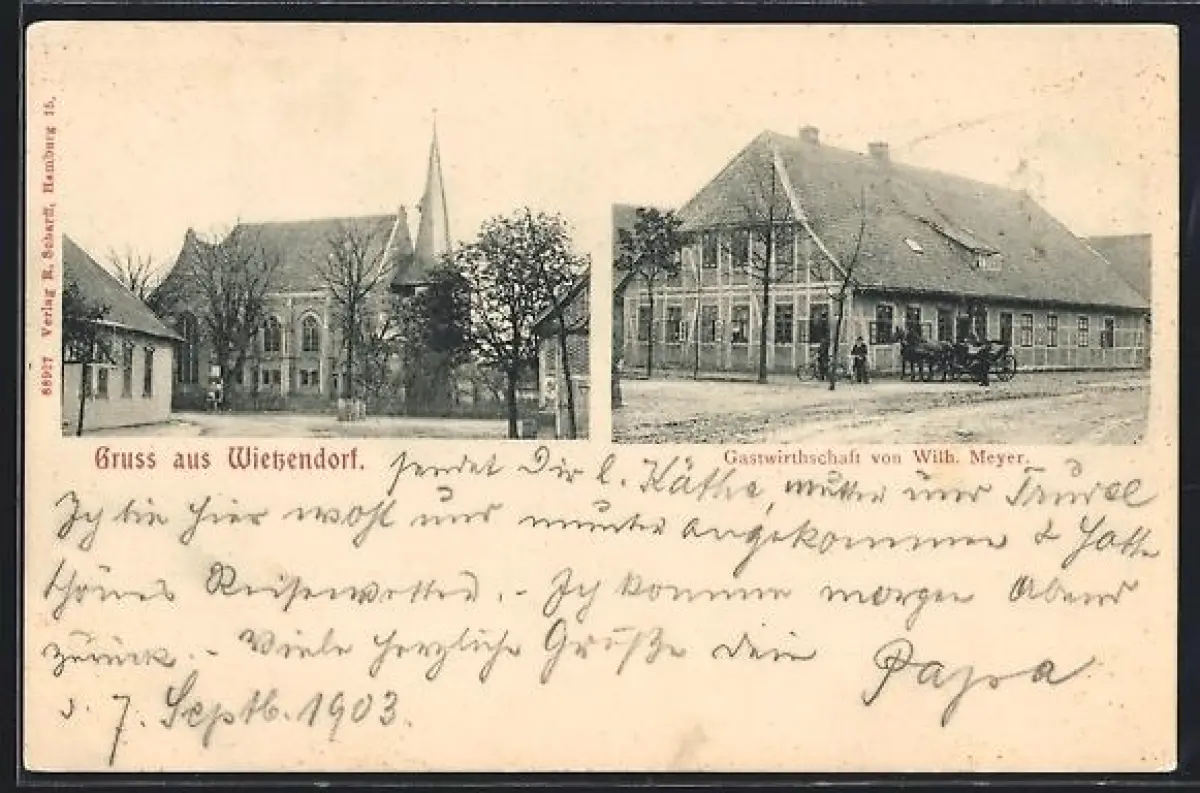 88927 Verlag R. Scharff, Hamburg 15.
Gruss aus Wietzendorf.
Gastwirthschaft von Wilh. Meyer.
sendet Dir l. Käthe, Mutter und Trudel
Ich bin hier wohl und munter angekommen & hatte
schönes Reisewetter. - Ich komme morgen Abend
zürück. - Viele herzliche Grüße dein Papa
d. 7. Septb. 1903.